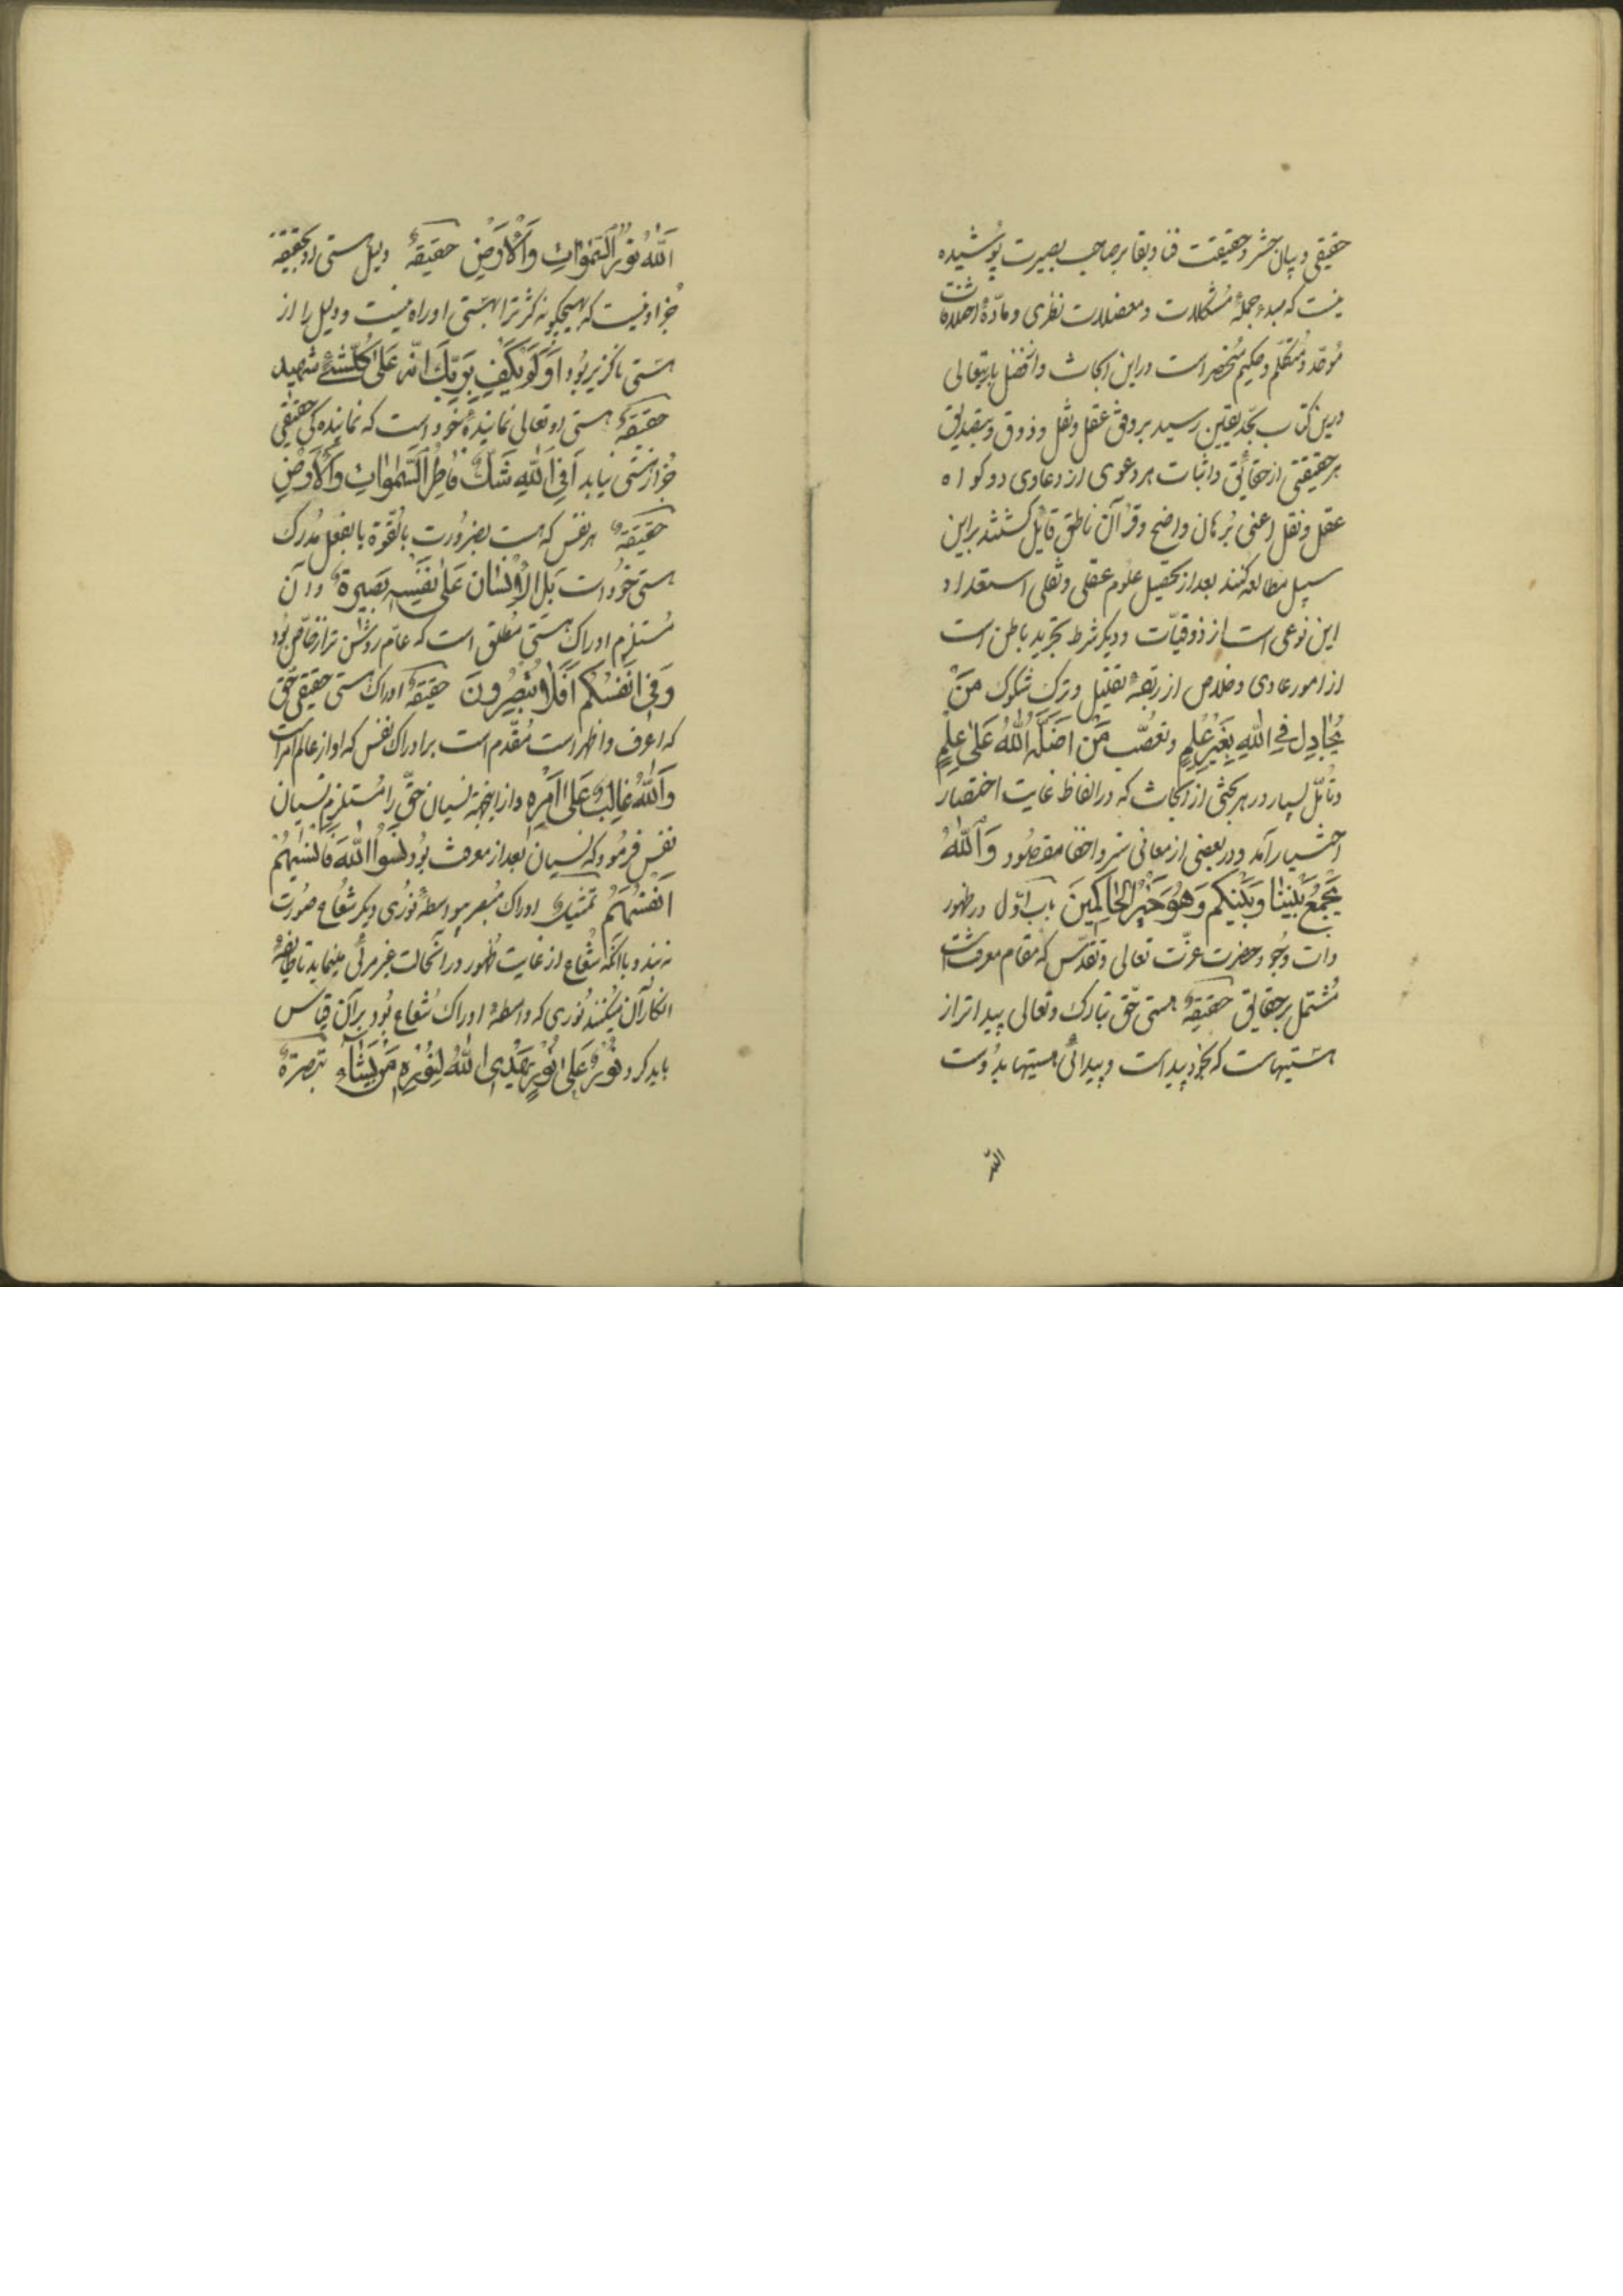 حقیقی و بیان حشر و حقیقت فنا و بقا بر صاحب بصیرت پوشیده
نیست که مبدء جملهٔ مشکلات و معضلات نظری و مادّهٔ اختلافات
موحّد و متکلّم و حکیم منحصر است در این ابحاث و از فضل باریتعالی
درین کتاب بحد یقین رسید بر وفق عقل و نقل و ذوق و بتصدیق
هر حقیقتی از حقایق و اثبات هر دعوی از دعاوی دو کواه
عقل و نقل اعنی برهان واضح و قرآن ناطق قایل کشتند براین
سبیل مطالعه کنند بعد از تحصیل علوم عقلی و نقلی استعداد
این نوعی است از ذوقیّات و دیکر شرط تجرید باطن است
از امور عادی و خلاص از ربقهٔ تقلیل و ترک شکوک مَنْ
یُجَادِلُ فِی اللّٰهِ بِغَیْرِ عِلْمٍ و تعصّب مَنْ اَضَلَّهُ اللّٰهُ عَلیٰ عِلْمٍ
و تأمّل بسیار در هر بحثی از ابحاث که در الفاظ غایت اختصار
اختیار آمد و در بعضی از معانی ستر و اخفا مقصود وَاللّٰهُ
یَجْمَعُ بَیْنَنَا وَبَیْنَکُم وَهُوَ خَیْرُ الْحَاکِمِینَ باب اوّل در ظهور
ذات وجود حضرت عزّت تعالی و تقدّس که مقام معرفتست
مشتمل بر حقایق حقیقةٌ هستی حقّ تبارک و تعالی پیداتر از
هستیهاست که بخود پیداست و پیدائی هستیها بدوست
اللّه
اَللّٰهُ نُورُ السَّمٰوَاتِ وَالْاَرْضِ حقیقةٌ دلیل هستی او بحقیقه
جز او نیست که هیچگونه کثرت را بهستی او راه نیست و دلیل را از
هستی ناکزیر بود اَوَلَمْ یَکْفِ بِرَبِّکَ اَنَّهُ عَلیٰ کُلِّ شَیْءٍ شَهِید
حقیقةٌ هستی او تعالی نمایندهٔ خود است که نمایندکی حقیقی
جز از هستی نیاید اَفِی اللّٰهِ شَکٌّ فَاطِرِ السَّمٰوَاتِ وَالْاَرْضِ
حقیقةٌ هر نفس که هست بضرورت بالقوة یا بفعل مدرک
هستی خود است بَلِ الْاِنْسَانُ عَلیٰ نَفْسِهِ بَصِیرَةٌ و آن
مستلزم ادراک هستی مطلق است که عامّ روشن‌تر از خاصّ بود
وَفِی اَنْفُسِکُم اَفَلَا تُبْصِرُونَ حقیقةٌ ادراک هستی حقیقی حقّ
که اعرف و اظهر است مقدّم است بر ادراک نفس که او از عالم امر است
وَاللّٰهُ غَالِبٌ عَلیٰ اَمْرِهِ و از اینجهة نسیان حقّ را مستلزم نسیان
نفس فرمود که نسیان بعد از معرفت بود نَسُوا اللّٰهَ فَاَنْسٰیهُمْ
اَنْفُسَهُمْ تمثیلٌ ادراک مبصر بواسطهٔ نوری دیکر شعاع صورت
نه بندد با آنکه شعاع از غایت ظهور در آنحالت غیر مرئی مینماید تا طایفهٔ
انکار آن میکنند نوری که واسطهٔ ادراک شعاع بود بر آن قیاس
باید کرد نُورٌ عَلیٰ نُورٍ یَهْدِی اللّٰهُ لِنُورِهِ مَنْ یَشَاءُ تبصرةٌ